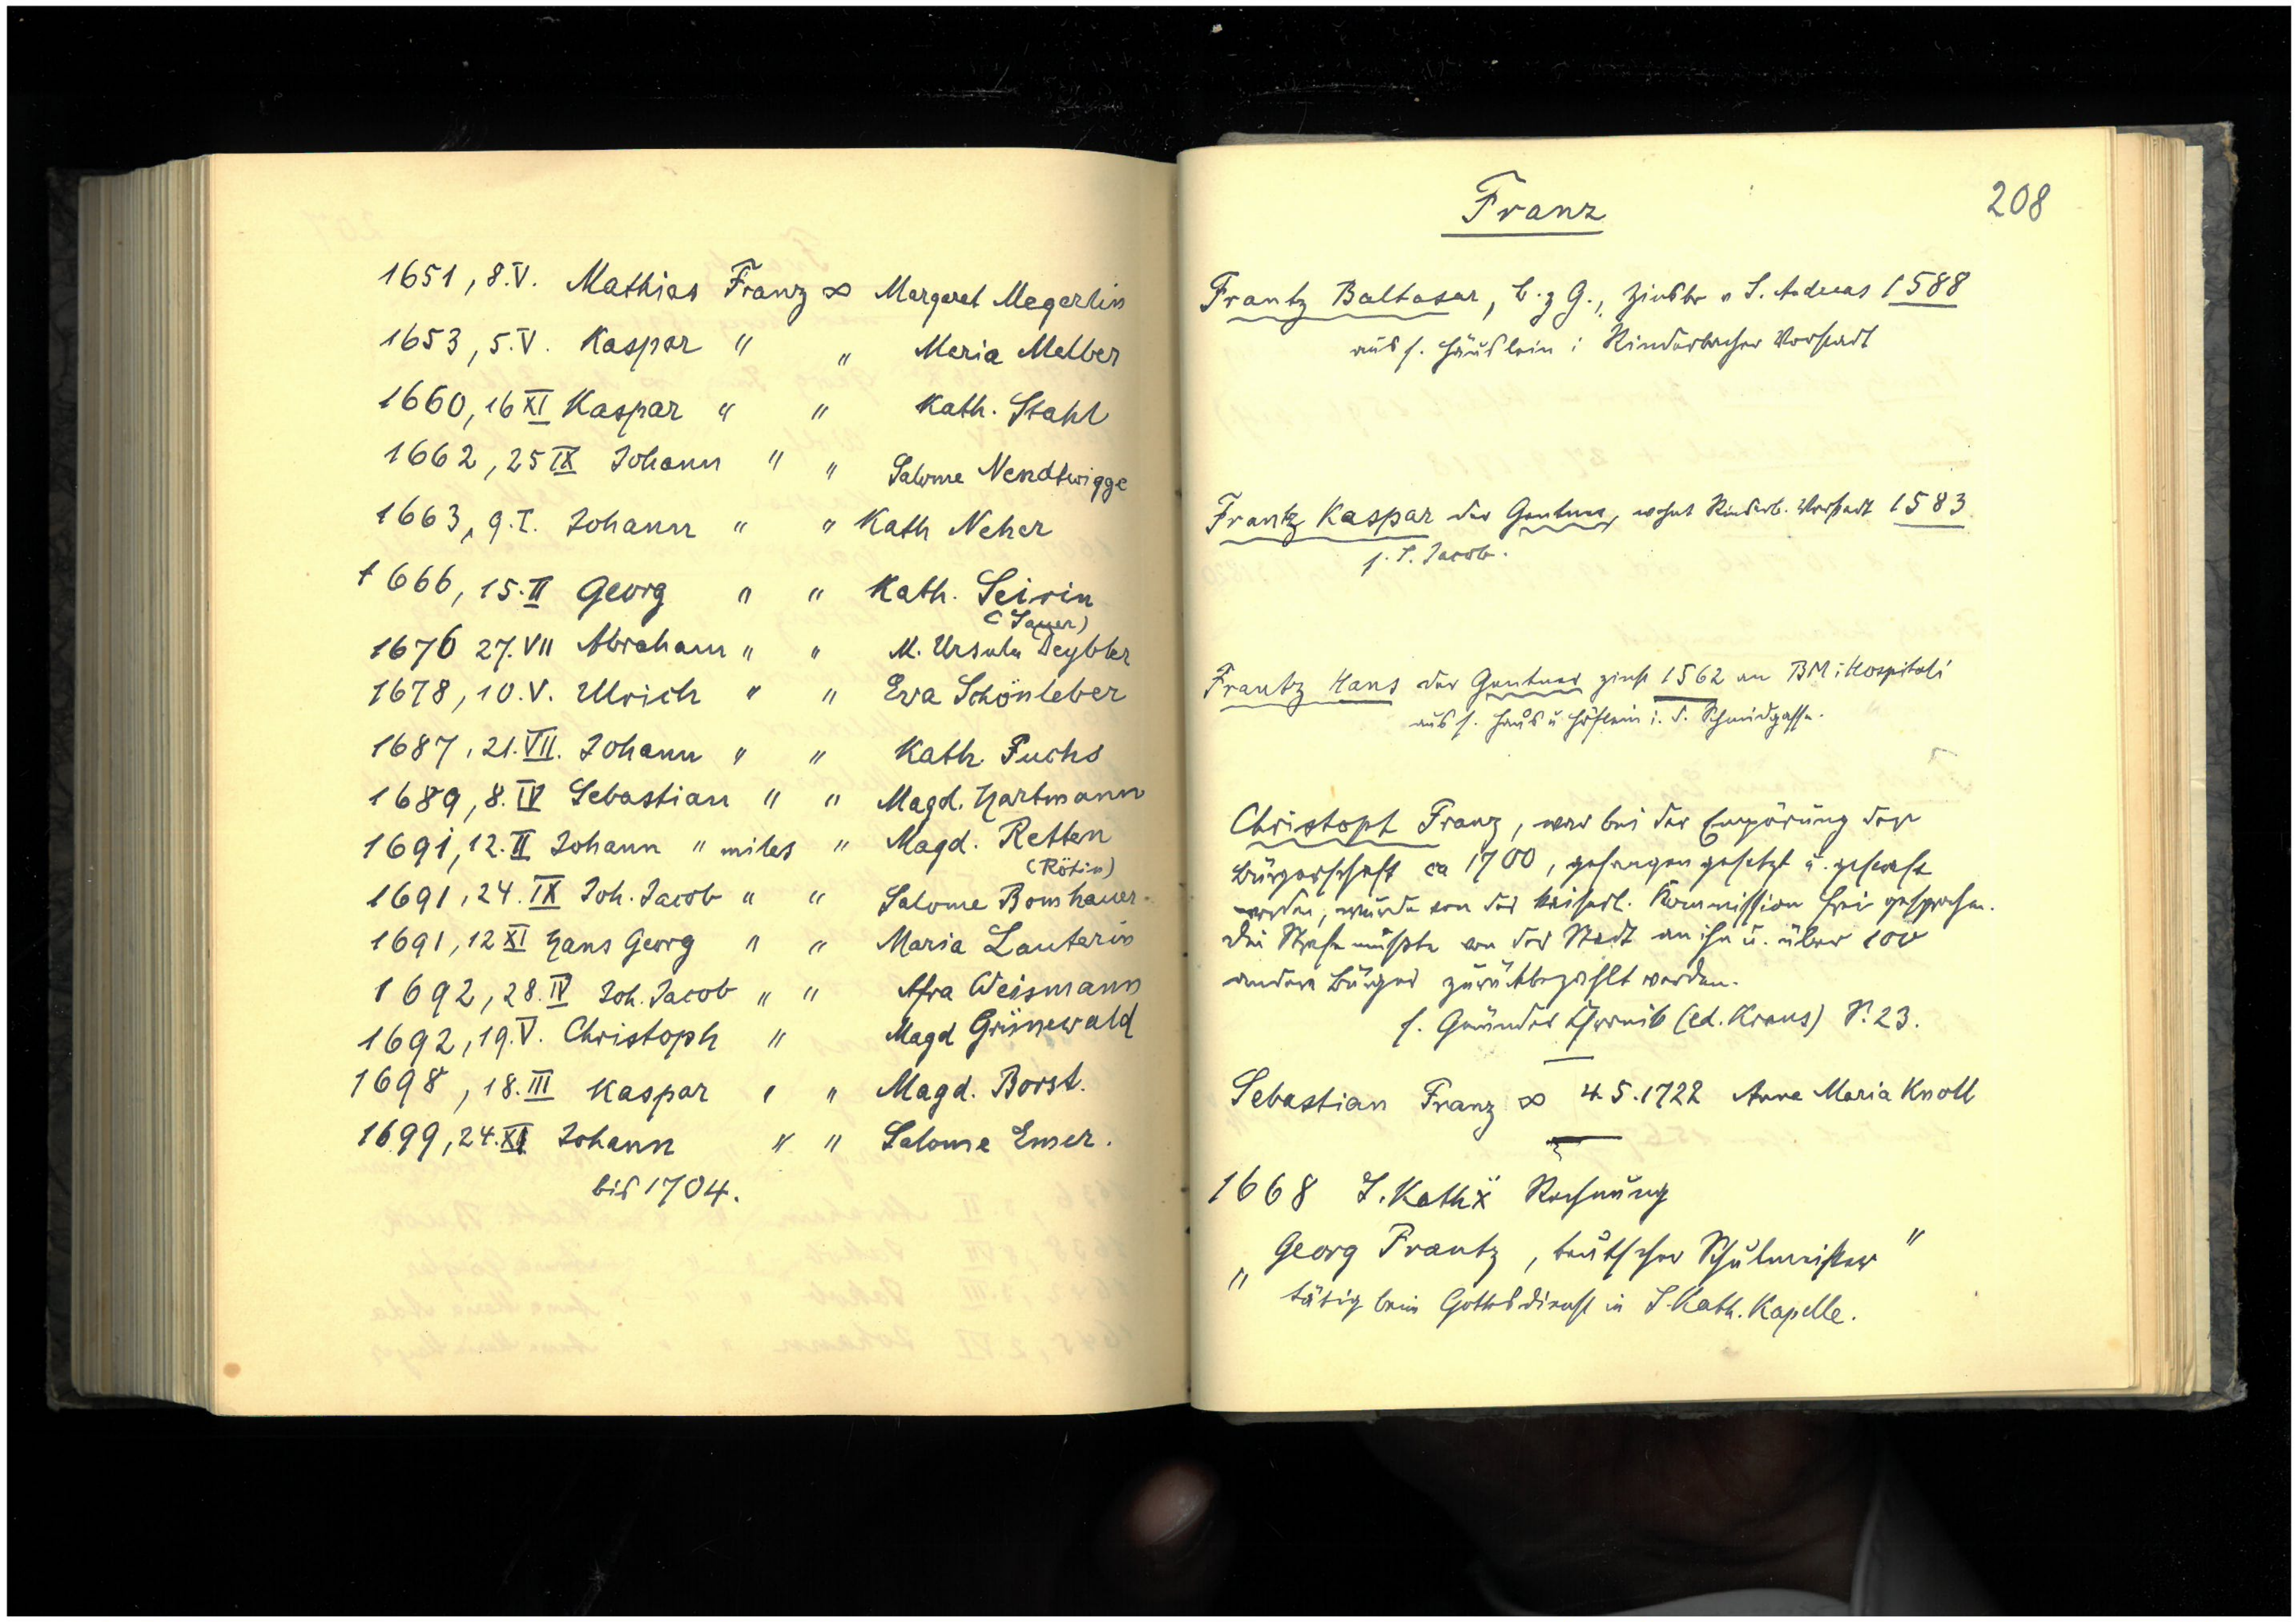 1651, 8.V. Mathias Franz ∞ Margaret Megerlin
1653, 5.V. Kaspar " " Maria Melber
1660, 16 XI Kaspar " " Kath. Stahl
1662, 25 IX Johann " " Salome Nendtwigge
1663, 9.I. Johann " " Kath Neher
1666, 15.II Georg " " Kath. Seirin
(Sayer)
1676 27.VII Abraham " " M. Ursula Deybler
1678, 10.V. Ulrich " " Eva Schönleber
1687, 21.VII. Johann " " Kath. Fuchs
1689, 8.IV Sebastian " " Magd. Hartmann
1691, 12.II Johann " miles " Magd. Retten
(Rötin)
1691, 24.IX Joh. Jacob " " Salome Bomhauer
1691, 12 XI Hans Georg " " Maria Lauterin
1692, 28.IV Joh. Jacob " " Afra Weismann
1692, 19.V. Christoph " Magd Grünewald
1698, 18.III Kaspar " " Magd. Borst.
1699, 24.XI Johann " " Salome Emer.
bis 1704.
Franz
208
Frantz Baltasar, b. z G., zinsbr v S. Andreas 1588
aus s. Häuslein i Rinderbacher Vorstadt
Frantz Kaspar der Gentner, wohnt Rinderb. Vorstadt 1583
s. S. Jacob.
Frantz Hans der Gentner zinst 1562 an BM i Hospitali
aus s. Haus u Höflein i. d. Schmidgasse.
Christoph Franz, war bei der Empörung der
Bürgerschaft ca 1700, gefangen gesetzt u. gestraft
worden, wurde von der kaiserl. Kommission frei gesprochen.
Die Strafe mußte von der Stadt an ihn u. über 100
andere Bürger zurückbezahlt werden.
s. Gmünder Chronik (ed. Kraus) S. 23.
Sebastian Franz ∞ 4.5.1722 Anna Maria Knoll
1668 S. Kath Rechnung
" Georg Frantz, teutscher Schulmeister "
tätig beim Gottesdienst in S. Kath. Kapelle.